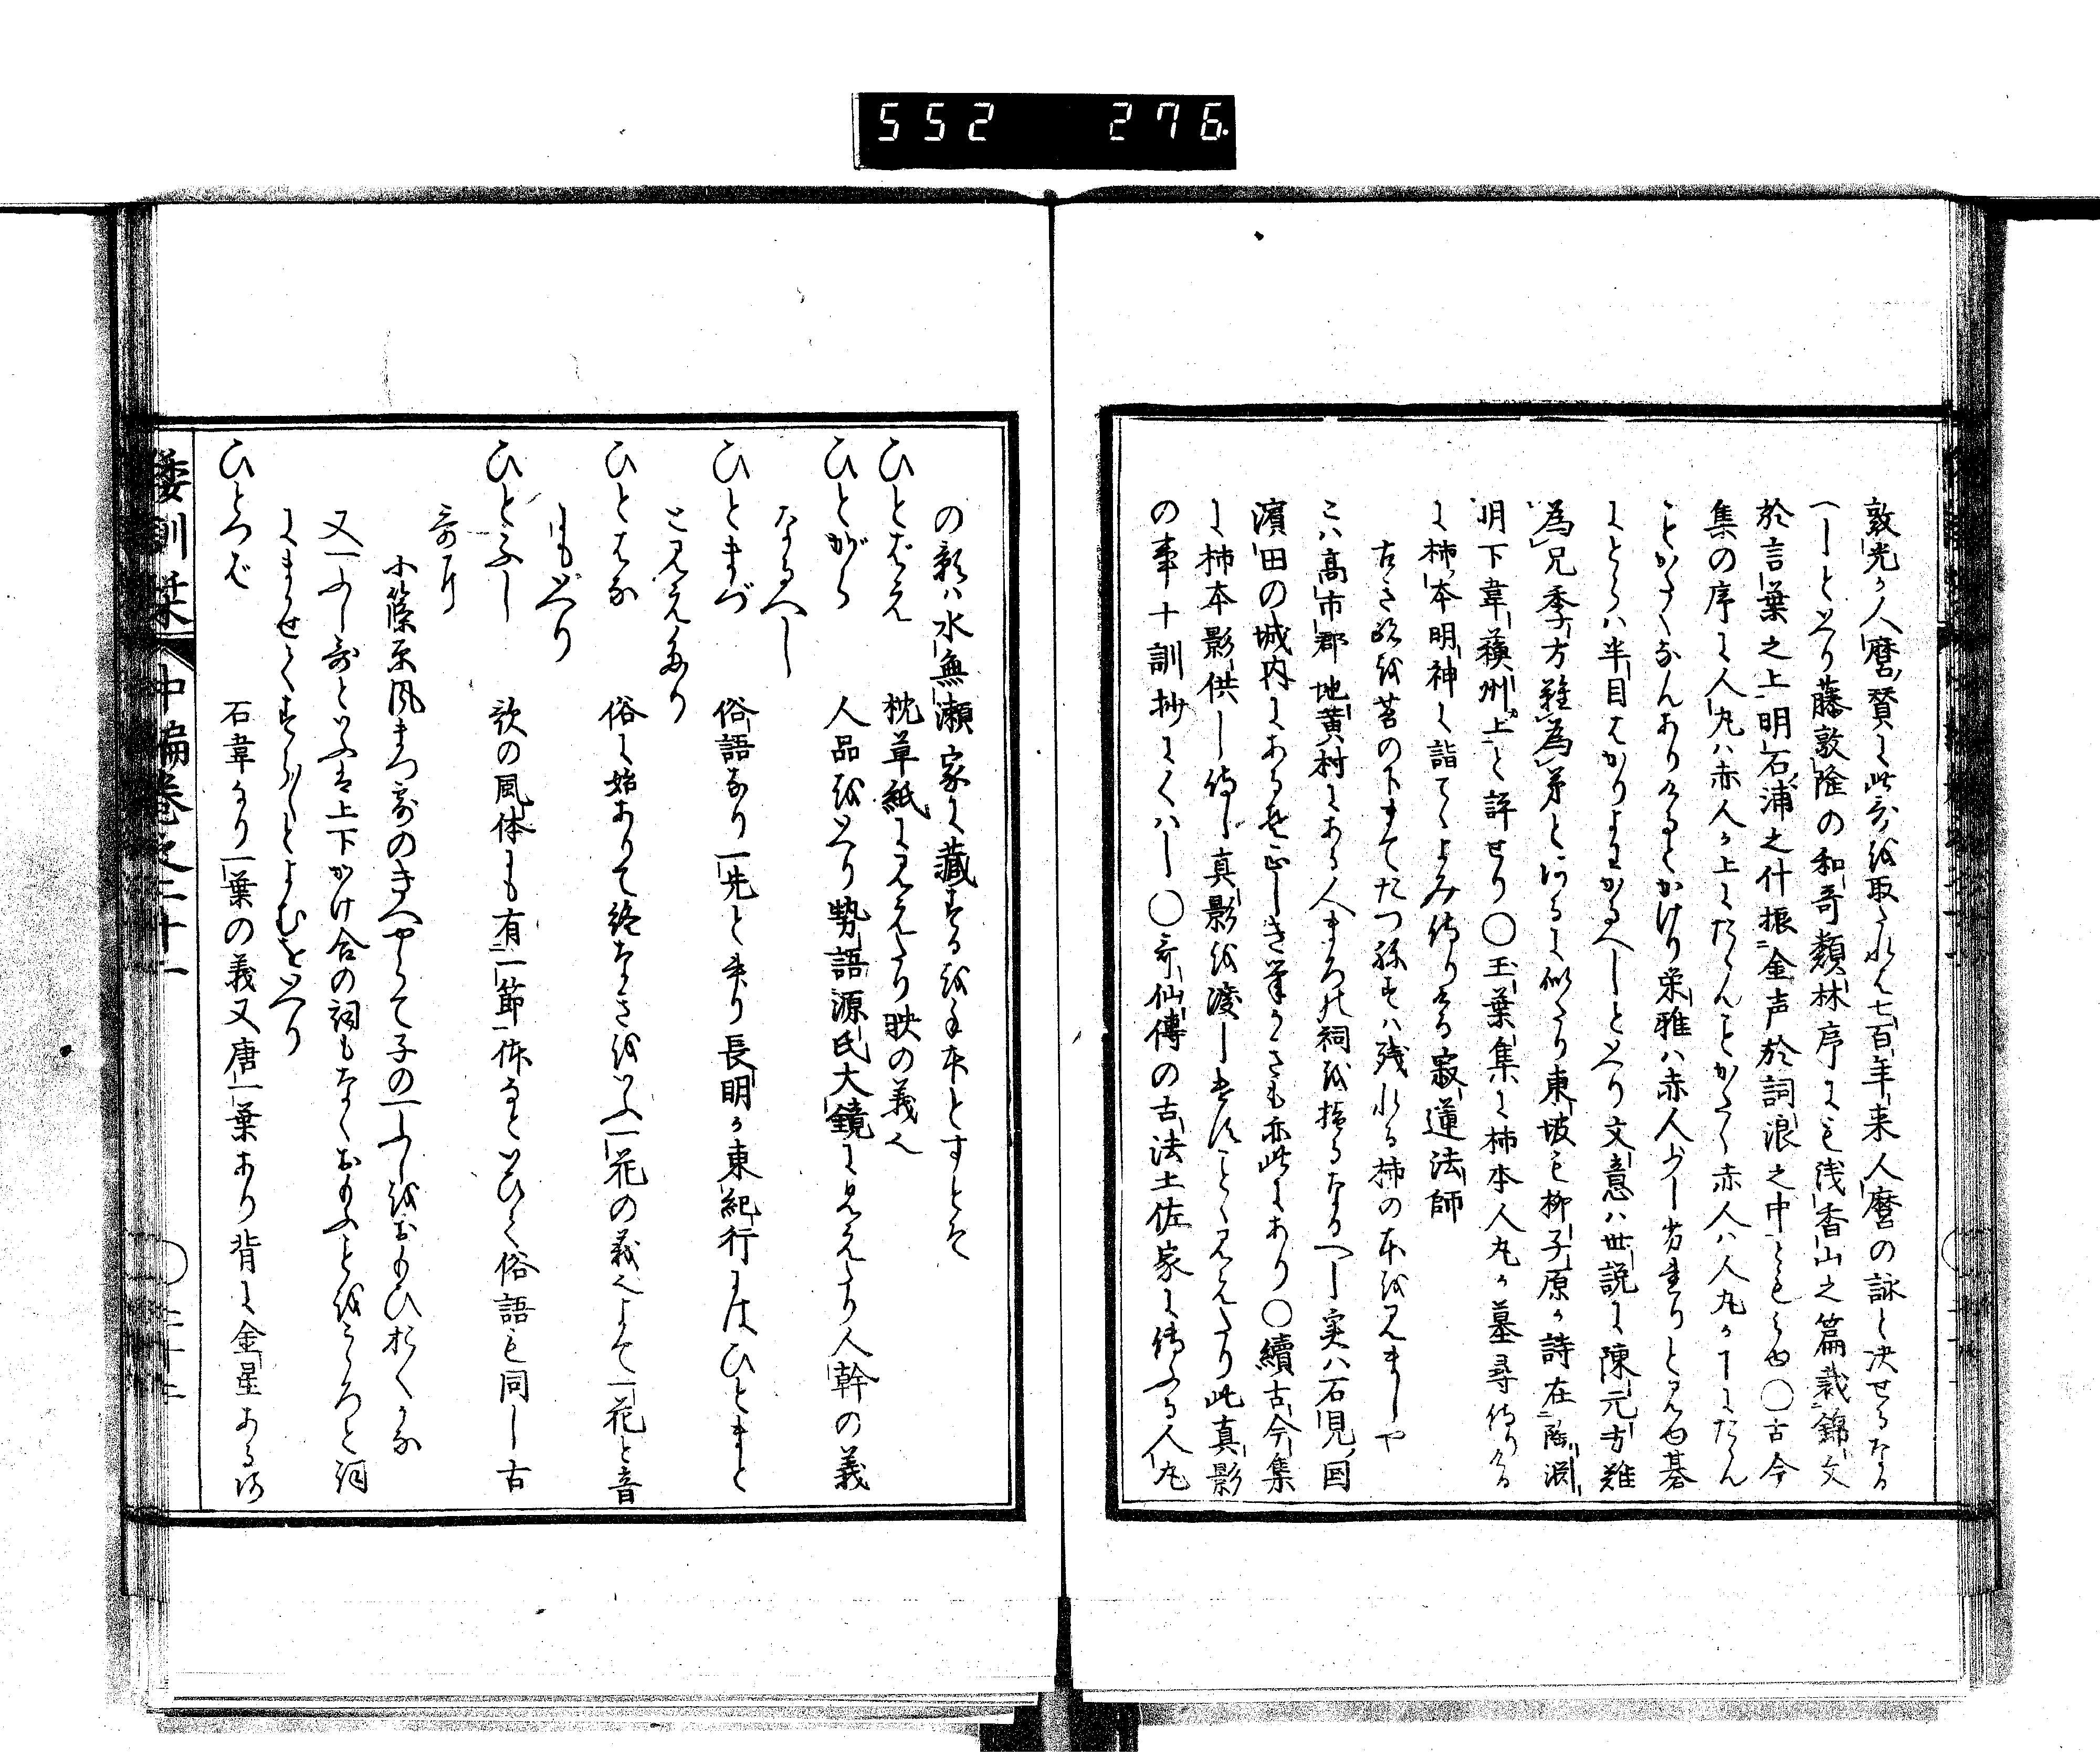 552 276
敦光か人麿賛に此哥を取されは七百年来人麿の詠と决せるなる
へしといへり藤敦隆の和哥類林序にも浅香山之篇裁錦文
於言葉之上明石浦之什振金声於詞浪之中ともみゆ〇古今
集の序に人丸は赤人か上にたゝんことかたく赤人は人丸か下にたゝん
ことかたくなんありけるとかけり栄雅は赤人少し劣るりと見ゆ碁
にとらは半目はかりよわかるへしといへり文意は世説に陳元方難
為兄季方難為弟とあるに似たり東坡も柳子原か詩在陶淵
明下韋蘇州上と評せり〇玉葉集に柿本人丸か墓尋侍りける
に柿本明神に詣てゝよみ侍りける寂蓮法師
古き跡を苔の下まてたつねすは残れる柿の本を見ましや
こは高市郡地黄村にある人まろの祠を指るなるへし実は石見国
濱田の城内にある
も亦此にあり〇續古今集
に柿本影供し侍し真影を渡し
こと見えたり此真影
の事十訓抄にくはし〇哥仙傳の古法土佐家に傳ふる人丸
の影は水無瀬家に蔵するを手本とすとそ
ひとばえ 枕草紙に見えたり映の義也
ひとがら 人品をいへり勢語源氏大鏡に見えたり人幹の義
なるへし
ひとまづ 俗語なり一先と書り長明か東紀行にはひとまと
と見えたり
ひとはな 俗に始ありて終なきをいふ一花の義也よて一花と音
にもいへり
ひとふし 歌の風体にも有一節体なといひて俗語も同し古
哥に
小篠原風まつ露のきえやらて子の一ふしをおもひおくかな
又一ふし哥といふは上下かけ合の詞もなくおもふとをころと詞
にまかせてすら〳〵とよむをいへり
ひとつば 石韋なり一葉の義又唐一葉あり背に金星ある汲
倭訓栞 中編巻之二十二 〇三十三